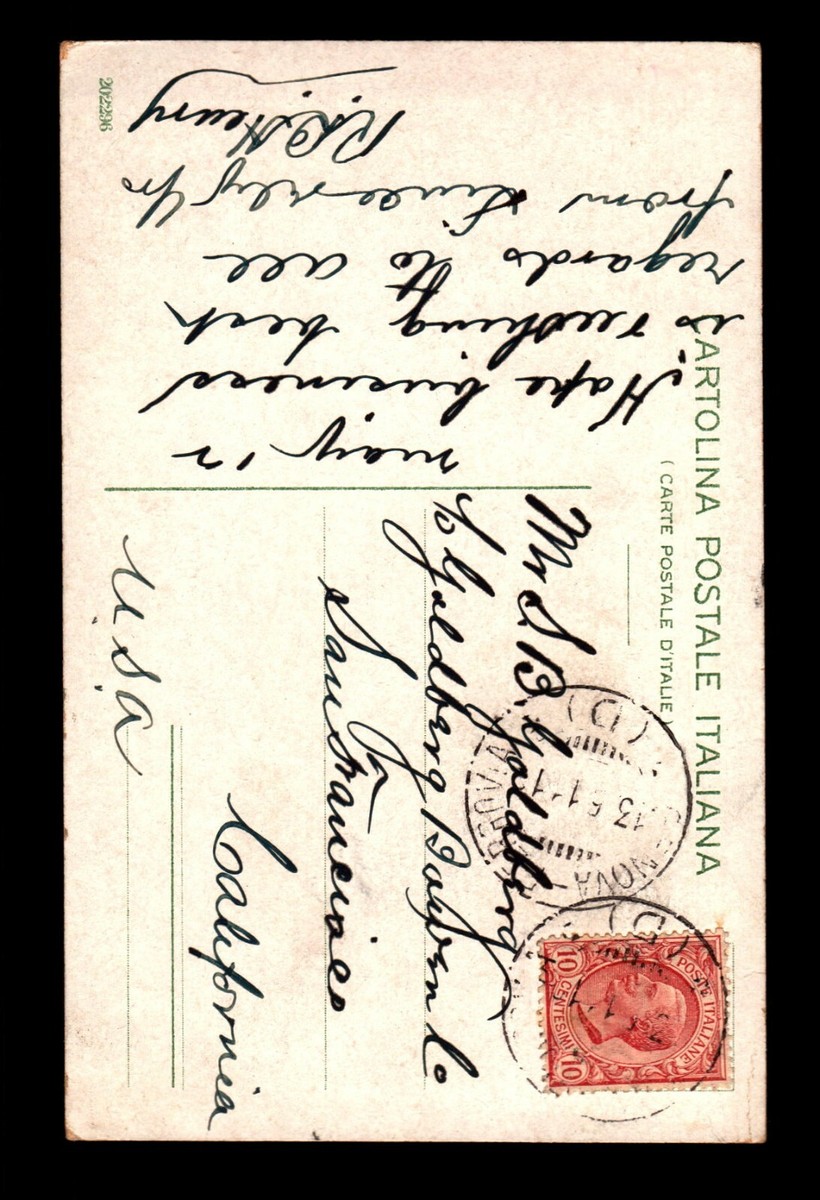 CARTOLINA POSTALE ITALIANA
(CARTE POSTALE D'ITALIE)
may 12
Hope business
is rushing best
regards to all
from sincerely yrs
R.R. Henry
202296
Mr S. B. Goldberg
c/o Goldberg Bowen Co
San Francisco
California
U.S.A
POSTE ITALIANE
10 CENTESIMI 10
GENOVA FERROVIA
13 5 11